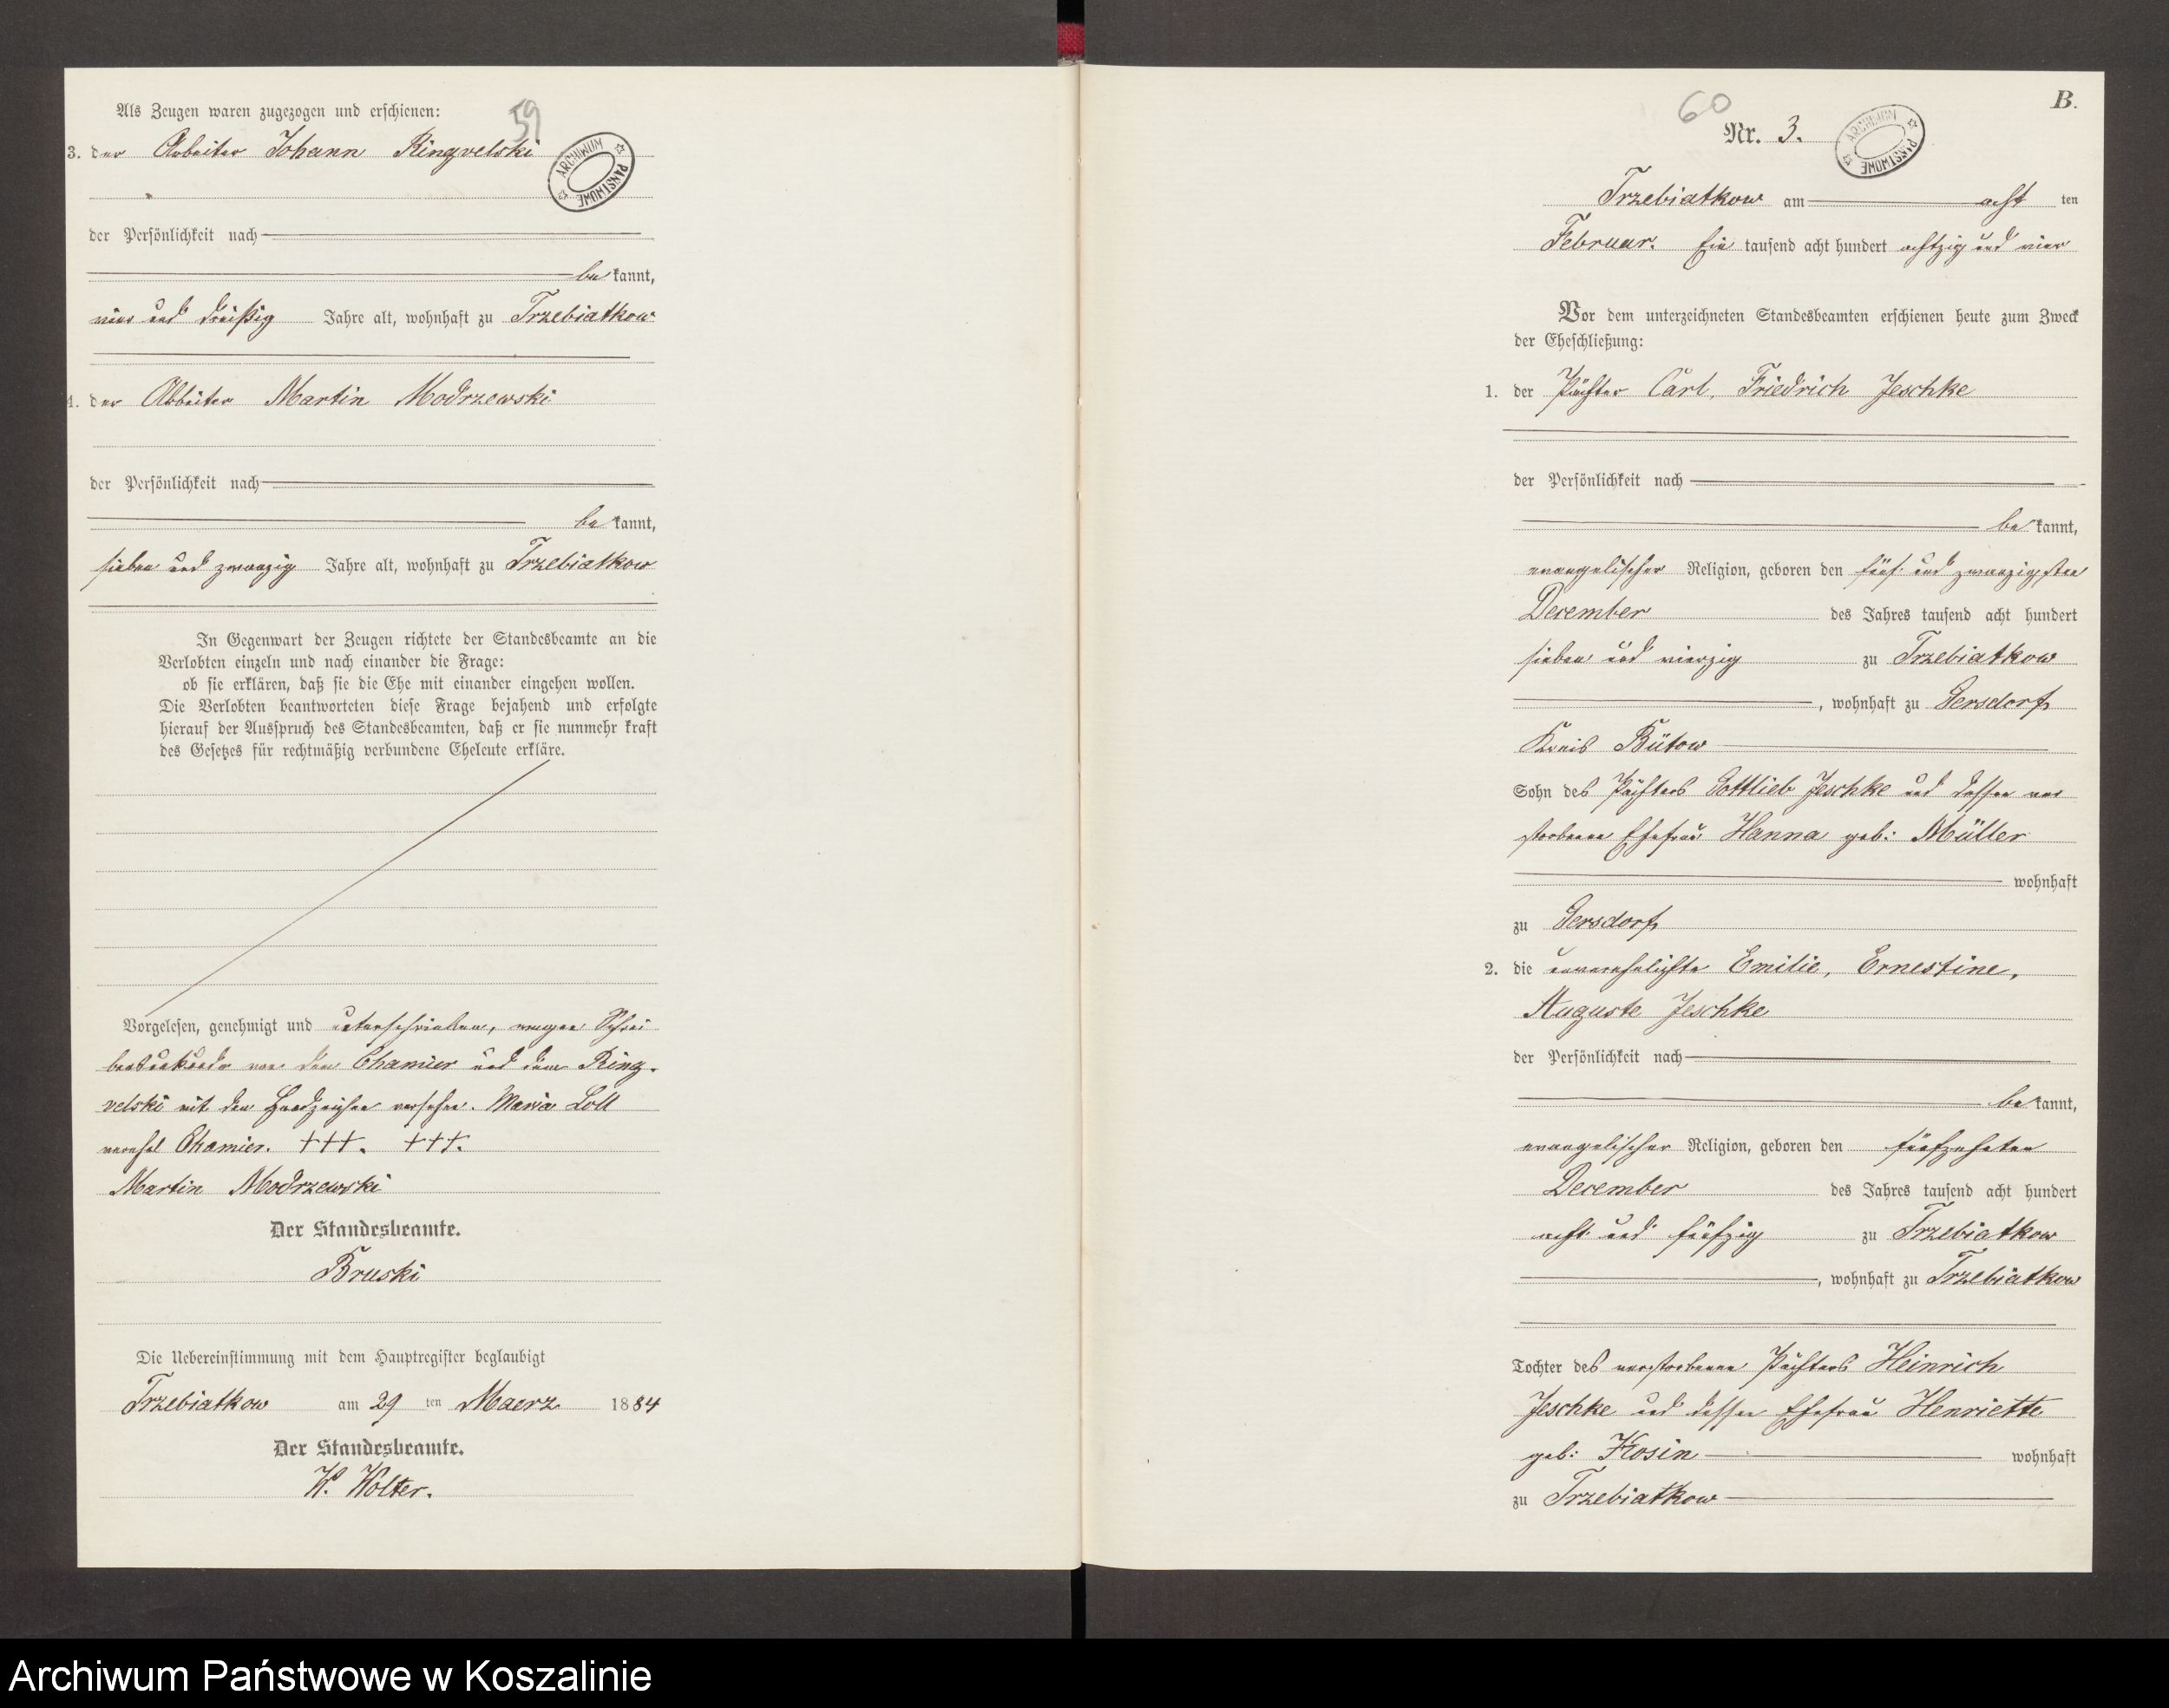 59
Als Zeugen waren zugezogen und erschienen:
3. der Arbeiter Johann Ringvelski
ARCHIWUM PAŃSTWOWE
der Persönlichkeit nach
be kannt,
vier und dreißig Jahre alt, wohnhaft zu Trzebiatkow
4. der Arbeiter Martin Modrzewski
der Persönlichkeit nach
be kannt,
sieben und zwanzig Jahre alt, wohnhaft zu Trzebiatkow
In Gegenwart der Zeugen richtete der Standesbeamte an die
Verlobten einzeln und nach einander die Frage:
ob sie erklären, daß sie die Ehe mit einander eingehen wollen.
Die Verlobten beantworteten diese Frage bejahend und erfolgte
hierauf der Ausspruch des Standesbeamten, daß er sie nunmehr kraft
des Gesetzes für rechtmäßig verbundene Eheleute erkläre.
Vorgelesen, genehmigt und unterschrieben, wegen Schrei
bensunkunde von dem Chamier und dem Ring-
velski mit den Handzeichen versehen. Maria Loll
verehel Chamier. +++. +++.
Martin Modrzewski
Der Standesbeamte.
Bruski
Die Uebereinstimmung mit dem Hauptregister beglaubigt
Trzebiatkow am 29 ten Maerz 1884
Der Standesbeamte.
W. Wolter.
B.
60
Nr. 3.
ARCHIWUM PAŃSTWOWE
Trzebiatkow am acht ten
Februar. Ein tausend acht hundert achtzig und vier
Vor dem unterzeichneten Standesbeamten erschienen heute zum Zweck
der Eheschließung:
1. der Pächter Carl, Friedrich Jeschke
der Persönlichkeit nach
be kannt,
evangelischer Religion, geboren den fünf und zwanzigsten
December des Jahres tausend acht hundert
sieben und vierzig zu Trzebiatkow
, wohnhaft zu Gersdorf
Kreis Bütow
Sohn des Pächters Gottlieb Jeschke und dessen ver
storbenen Ehefrau Hanna geb: Müller
wohnhaft
zu Gersdorf
2. die unverehelichte Emilie, Ernestine,
Auguste Jeschke
der Persönlichkeit nach
be kannt,
evangelischer Religion, geboren den fünfzehnten
December des Jahres tausend acht hundert
acht und fünfzig zu Trzebiatkow
, wohnhaft zu Trzebiatkow
Tochter des verstorbenen Pächters Heinrich
Jeschke und dessen Ehefrau Henriette
geb: Kosin wohnhaft
zu Trzebiatkow
Archiwum Państwowe w Koszalinie